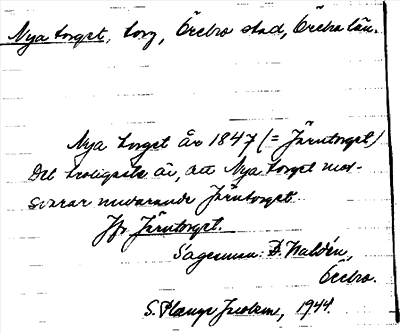 Nya torget, torg, Örebro stad, Örebro län.
Nya torget år 1847 (= Järntorget)
Det troligaste är, att Nya torget mot-
svarar nuvarande Järntorget.
Jfr Järntorget.
Sagesman: D. Waldén,
Örebro.
S. Plange Jacobson, 1944.